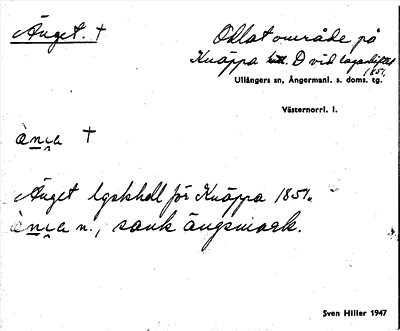 Änget. †
Oklat område på
Knäppa litt. D vid lagaskiftet
1851.
Ullångers sn, Ångermanl. s. doms. tg.
Västernorrl. l.
†
Änget lgskhdl för Knäppa 1851.
n., sank ängsmark.
Sven Hiller 1947